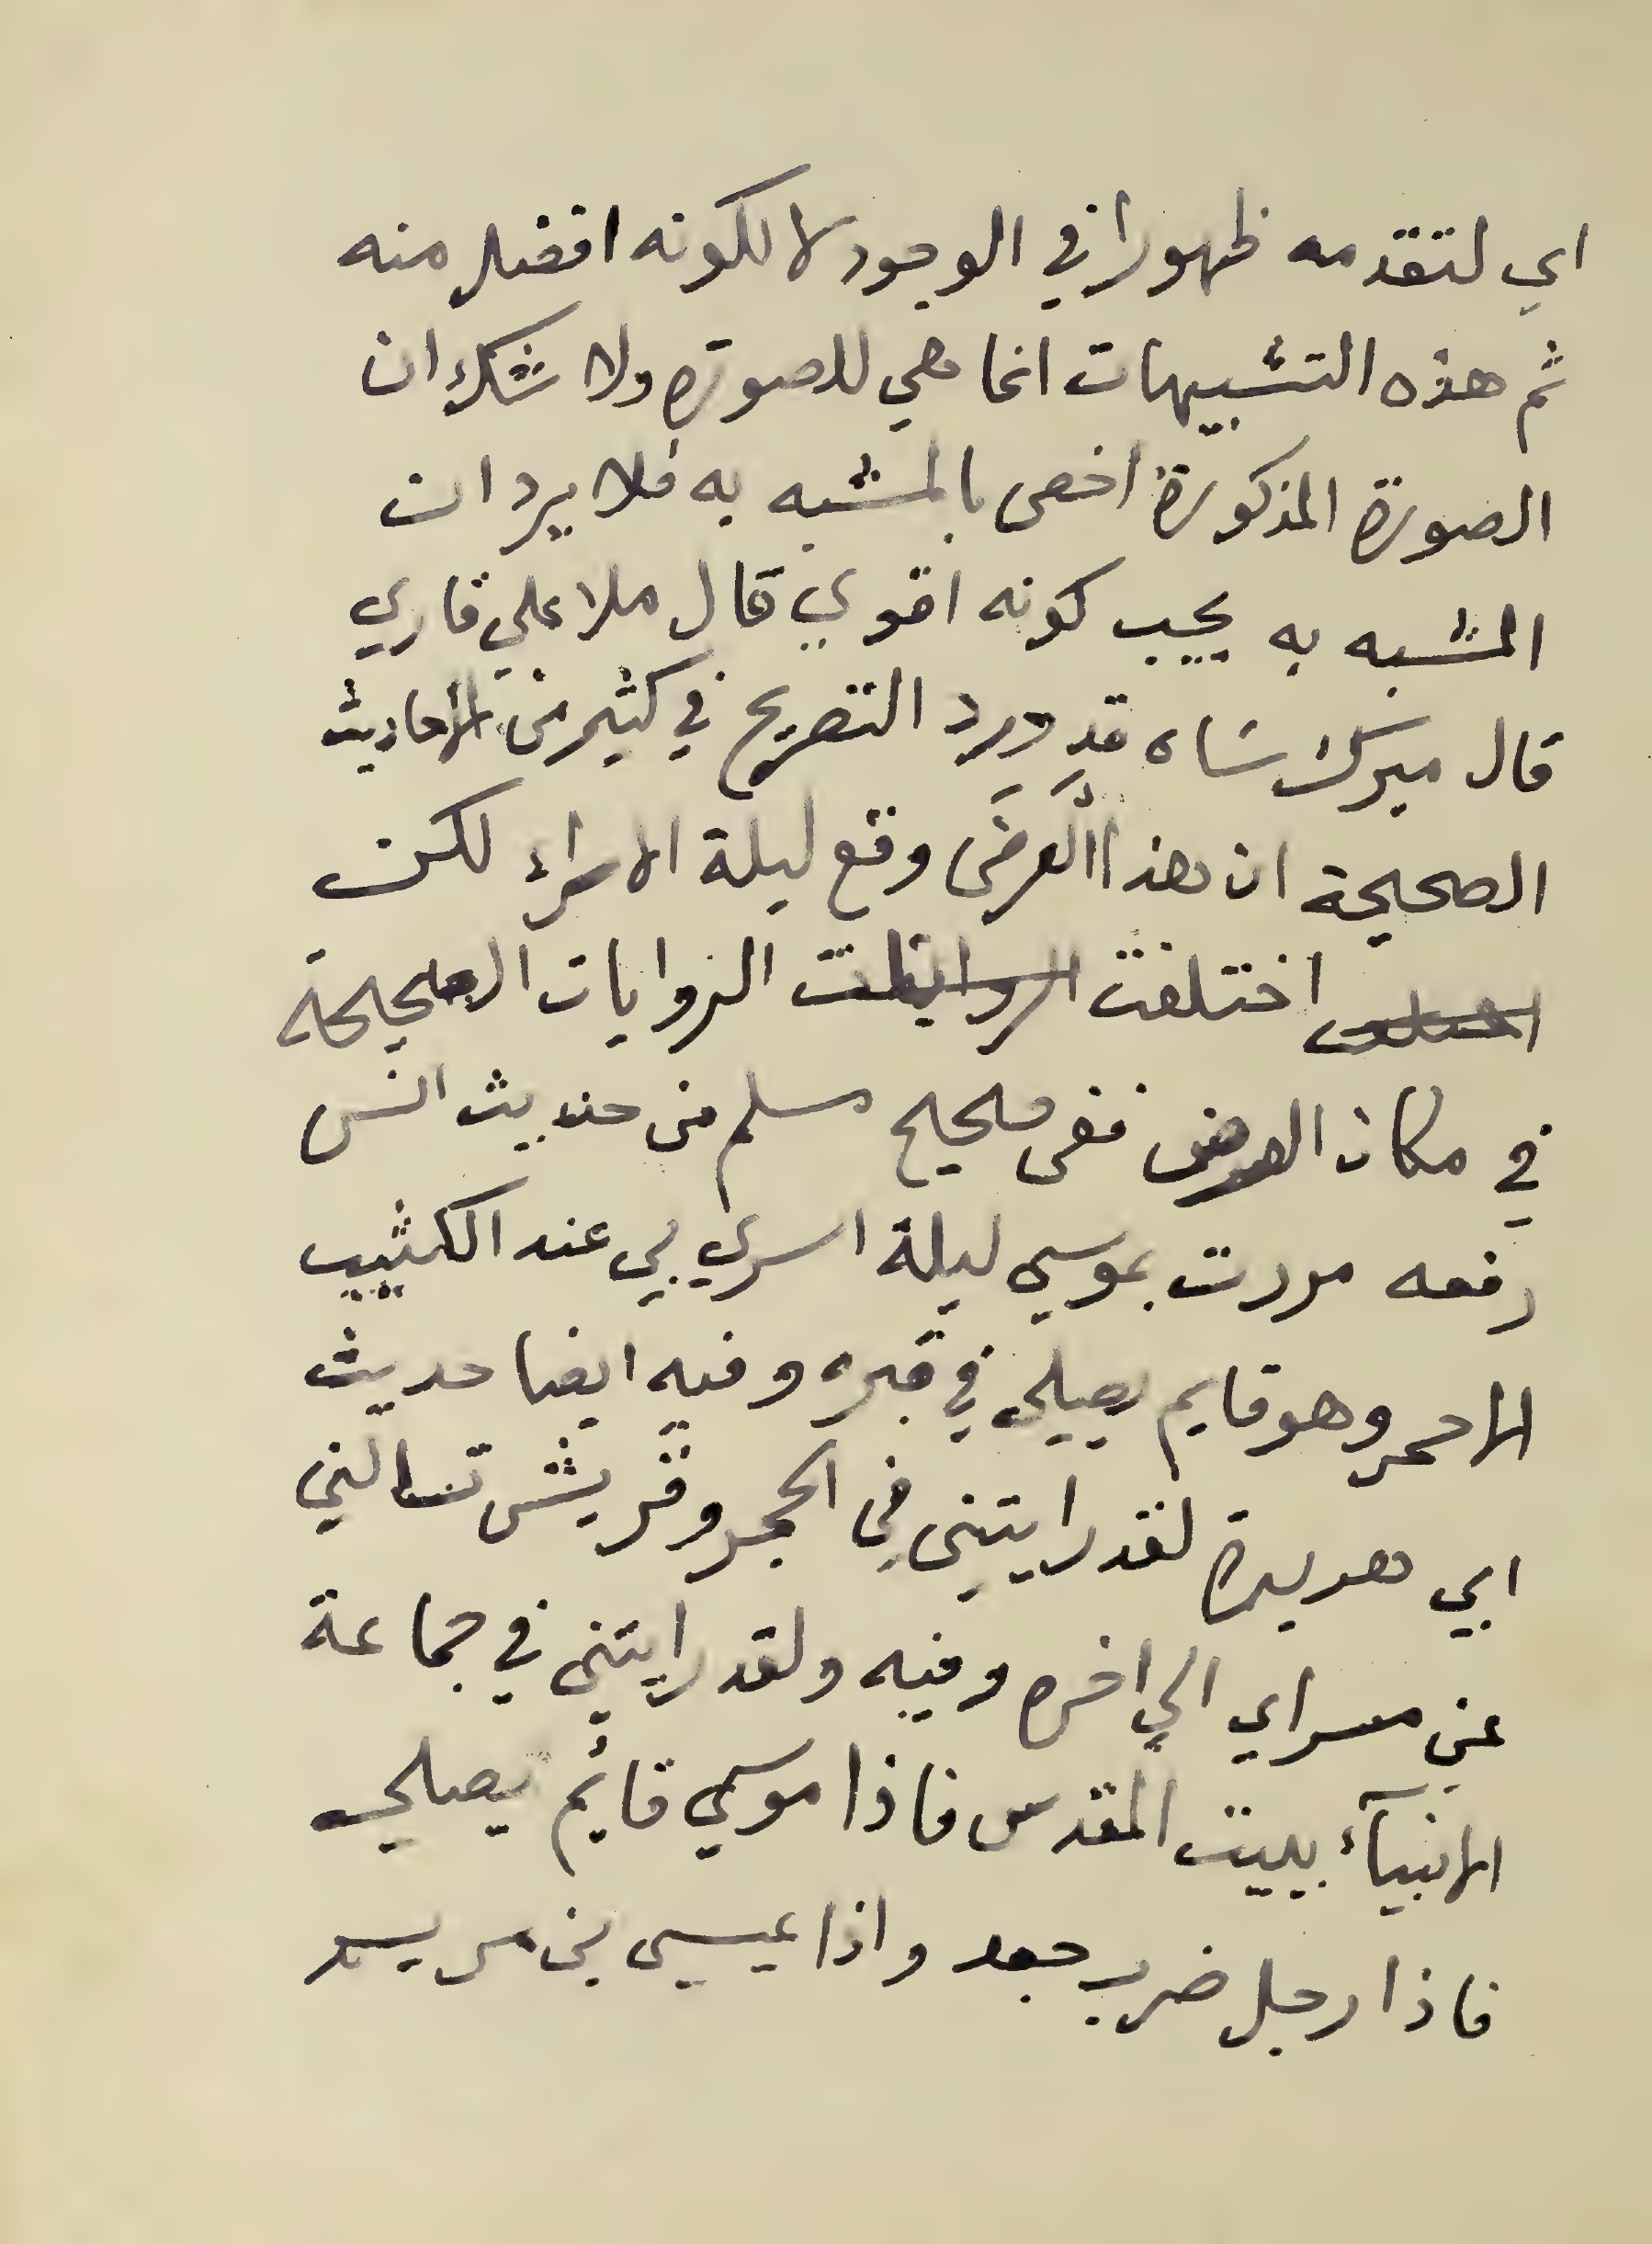 اي لتقدمه ظهورا في الوجود لا لكونه افضل منه
ثم هذه التشبيهات انما هي للصورة ولا شك ان
الصورة المذكورة اخص بالمشبه به فلا يرد ان
المشبه به يجب كونه اقوي قال ملا علي قاري
قال ميرك شاه قد ورد التصريح في كثير من الأحاديث
الصحيحة ان هذا العرض وقع ليلة الاسراء لكن
اختلفت الروايات الروايات الصحيحة
في مكان العرض ففى صحيح مسلم من حديث انس
رفعه مررت بموسي ليلة اسري بي عند الكثيب
الاحمر وهو قايم يصلي في قبره وفيه ايضا حديث
ابي هريرة لقد رايتنى في الحجر وقريش تسالني
عن مسراي الي اخره وفيه ولقد رايتني في جماعة
الانبيآء ببيت المقدس فاذا موسي قائم يصلي
فاذا رجل ضرب جعد واذا عيسى بن مريم